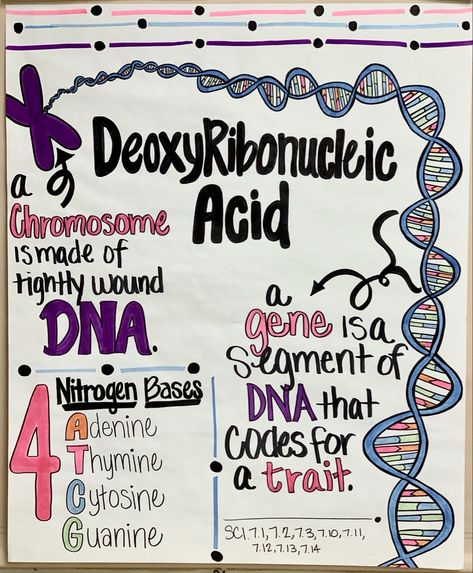 DeoxyRibonucleic
Acid
a
Chromosome
is made of
tightly wound
DNA.
a
gene is a
segment of
DNA that
codes for
a trait.
4 Nitrogen Bases
Adenine
Thymine
Cytosine
Guanine
SCI.7.1, 7.2, 7.3, 7.10, 7.11,
7.12, 7.13, 7.14